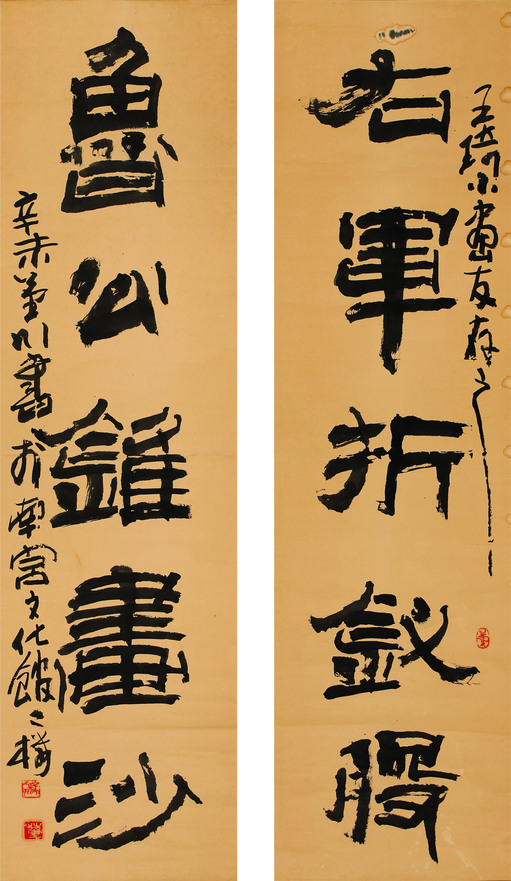 王琦小畫友存之
右軍折釵股
魯公錐畫沙
辛未川書於南宮文化館二樓